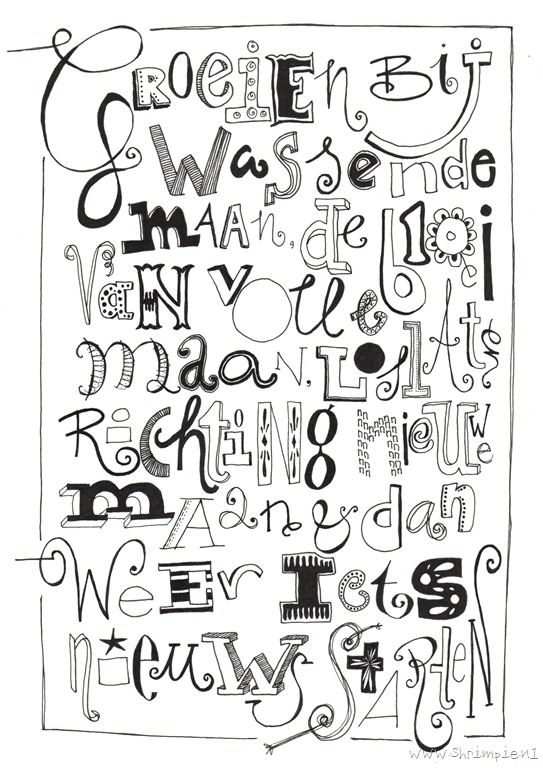 GROEIEN BIJ
Wassende
MAAN, de bloei
VAN VOLLE
maan, LOSLATEN
RiChtiNg nieuwe
maan & dan
Weer IETS
nieuws STARTEN
www.Shrimpien1